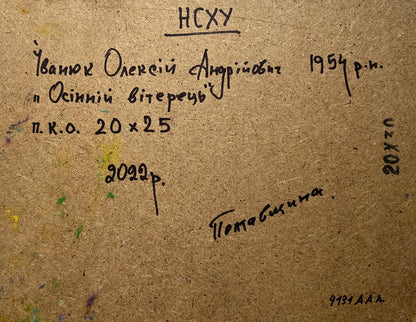 НСХУ
Іванюк Олексій Андрійович 1954 р.н.
„Осінній вітерець"
п.к.о. 20 х 25
20х20
2022р.
Потавщина.
9191ААА